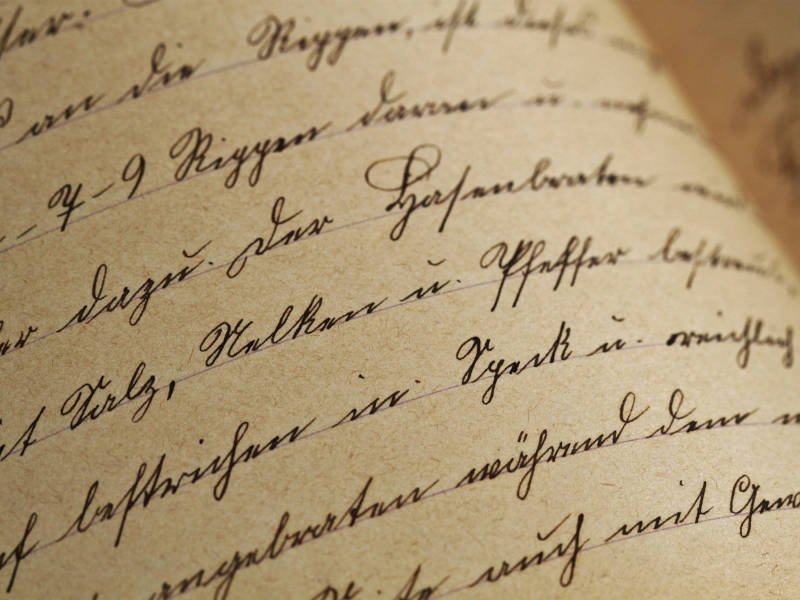 an die Rippen, ist dieses
- 7 - 9 Rippen daran u.
dazu. Der Hasenbraten
Salz, Nelken u. Pfeffer bestreut
bestrichen in Speck u. reichlich
angebraten während dem
auch mit Gew